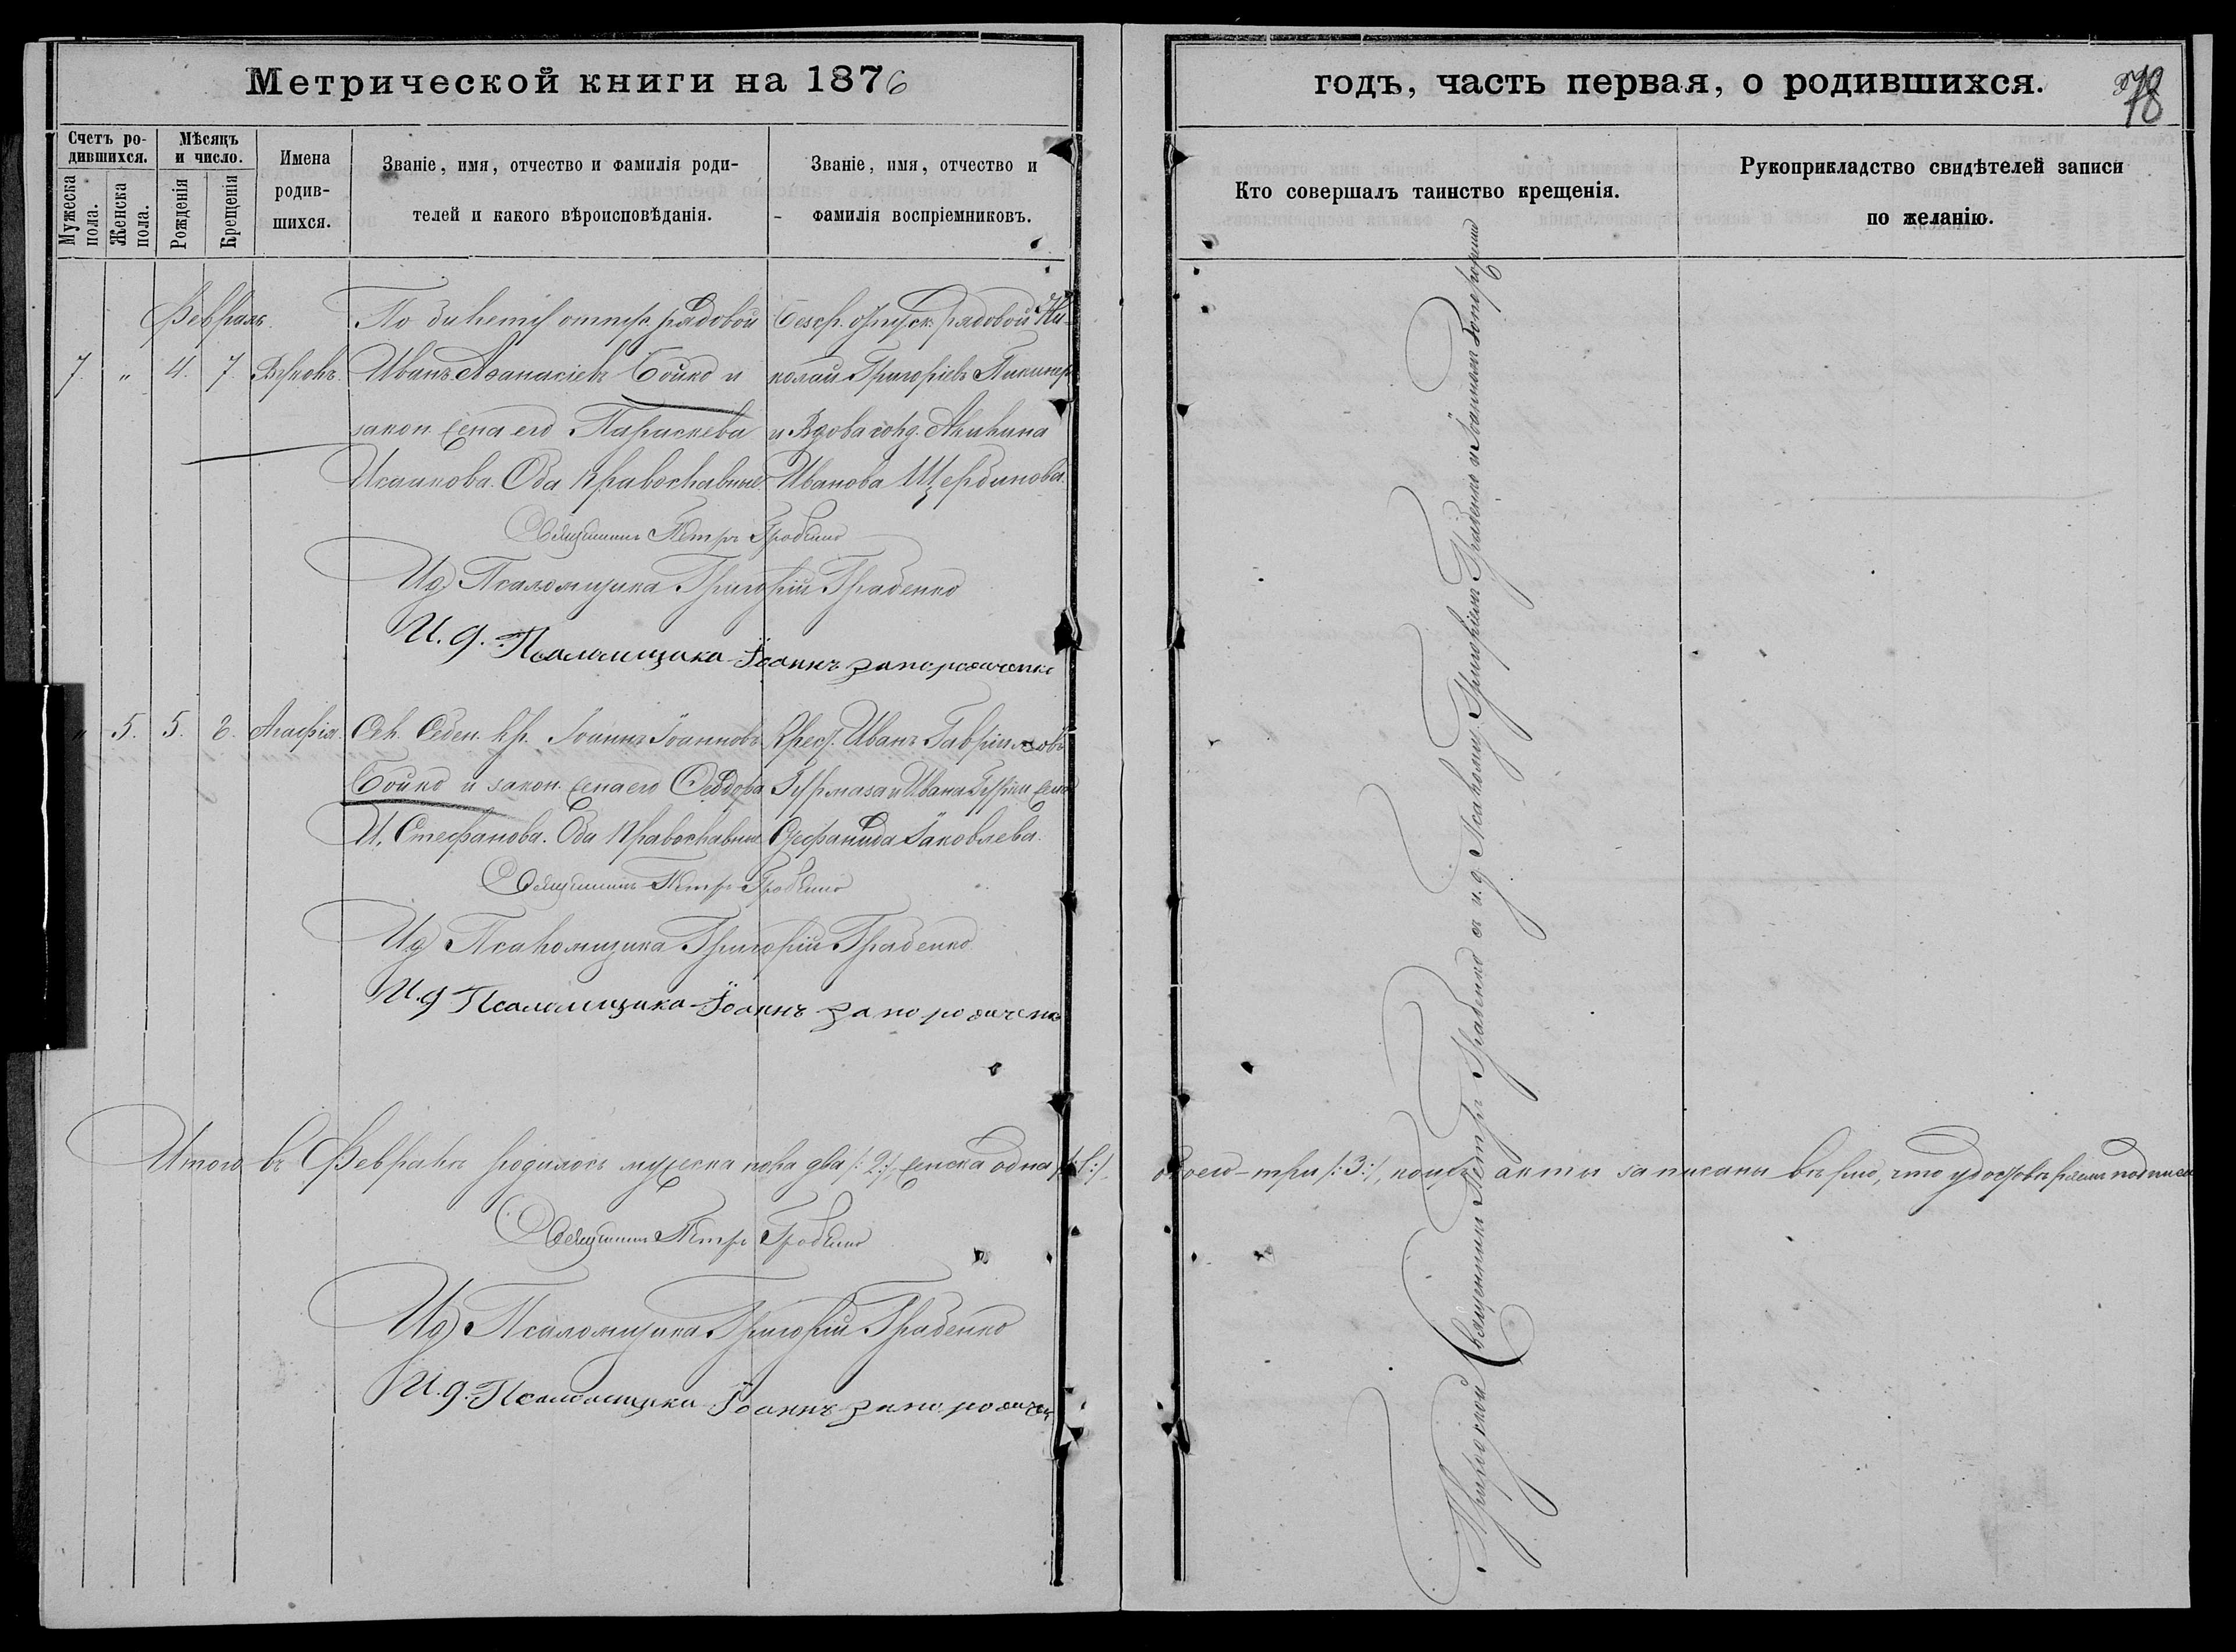 Метрической книги на 1876
годъ, часть первая, о родившихся.
78
Счетъ ро-
дившихся.
Мужеска
пола.
Женска
пола.
Мѣсяцъ
и число.
Рожденія
Крещенія
Имена
родив-
шихся.
Званіе, имя, отчество и фамилія роди-
телей и какого вѣроисповѣданія.
Званіе, имя, отчество и
фамилія воспріемниковъ.
Кто совершалъ таинство крещенія.
Рукоприкладство свидѣтелей записи
по желанію.
Февраль.
По билету отпуск. рядовой
Иванъ Аѳанасіевъ Бойко и
закон. жена его Параскева
Исаакова. Оба православные
7. " 4. 7.
рядовой Ни-
колай Григоріевъ
и Вдова солд. Акилина
Иванова Щербинова.
Священникъ Петръ Грабенко
Ид Псаломщика Григорій Грабенко
И. д. Псаломщика Іоаннъ Запорожченко
" 5. 5. 8. Агафія.
Іоаннъ Іоанновъ
Бойко и закон. жена его Ѳеодора
Стефанова. Оба Православные
Крест. Иванъ Гавріиловъ
Яковлева.
Священникъ Петръ Грабенко
Ид Псаломщика Григорій Грабенко
И. д Псаломщика Іоаннъ Запорожченко
Итого въ Февралѣ родилось мужеска пола два /:2:/, женска одна /:1:/,
обоего - три /:3:/, коихъ акты записаны вѣрно, что удостовѣряемъ подписью
Священникъ Петръ Грабенко
Ид Псаломщика Григорій Грабенко
И. д. Псаломщика Іоаннъ Запорожчен
Приходской Священникъ Петръ Грабенко съ и. д. Псаломщ. Григоріемъ Грабенко и Іоанномъ Запорожченко